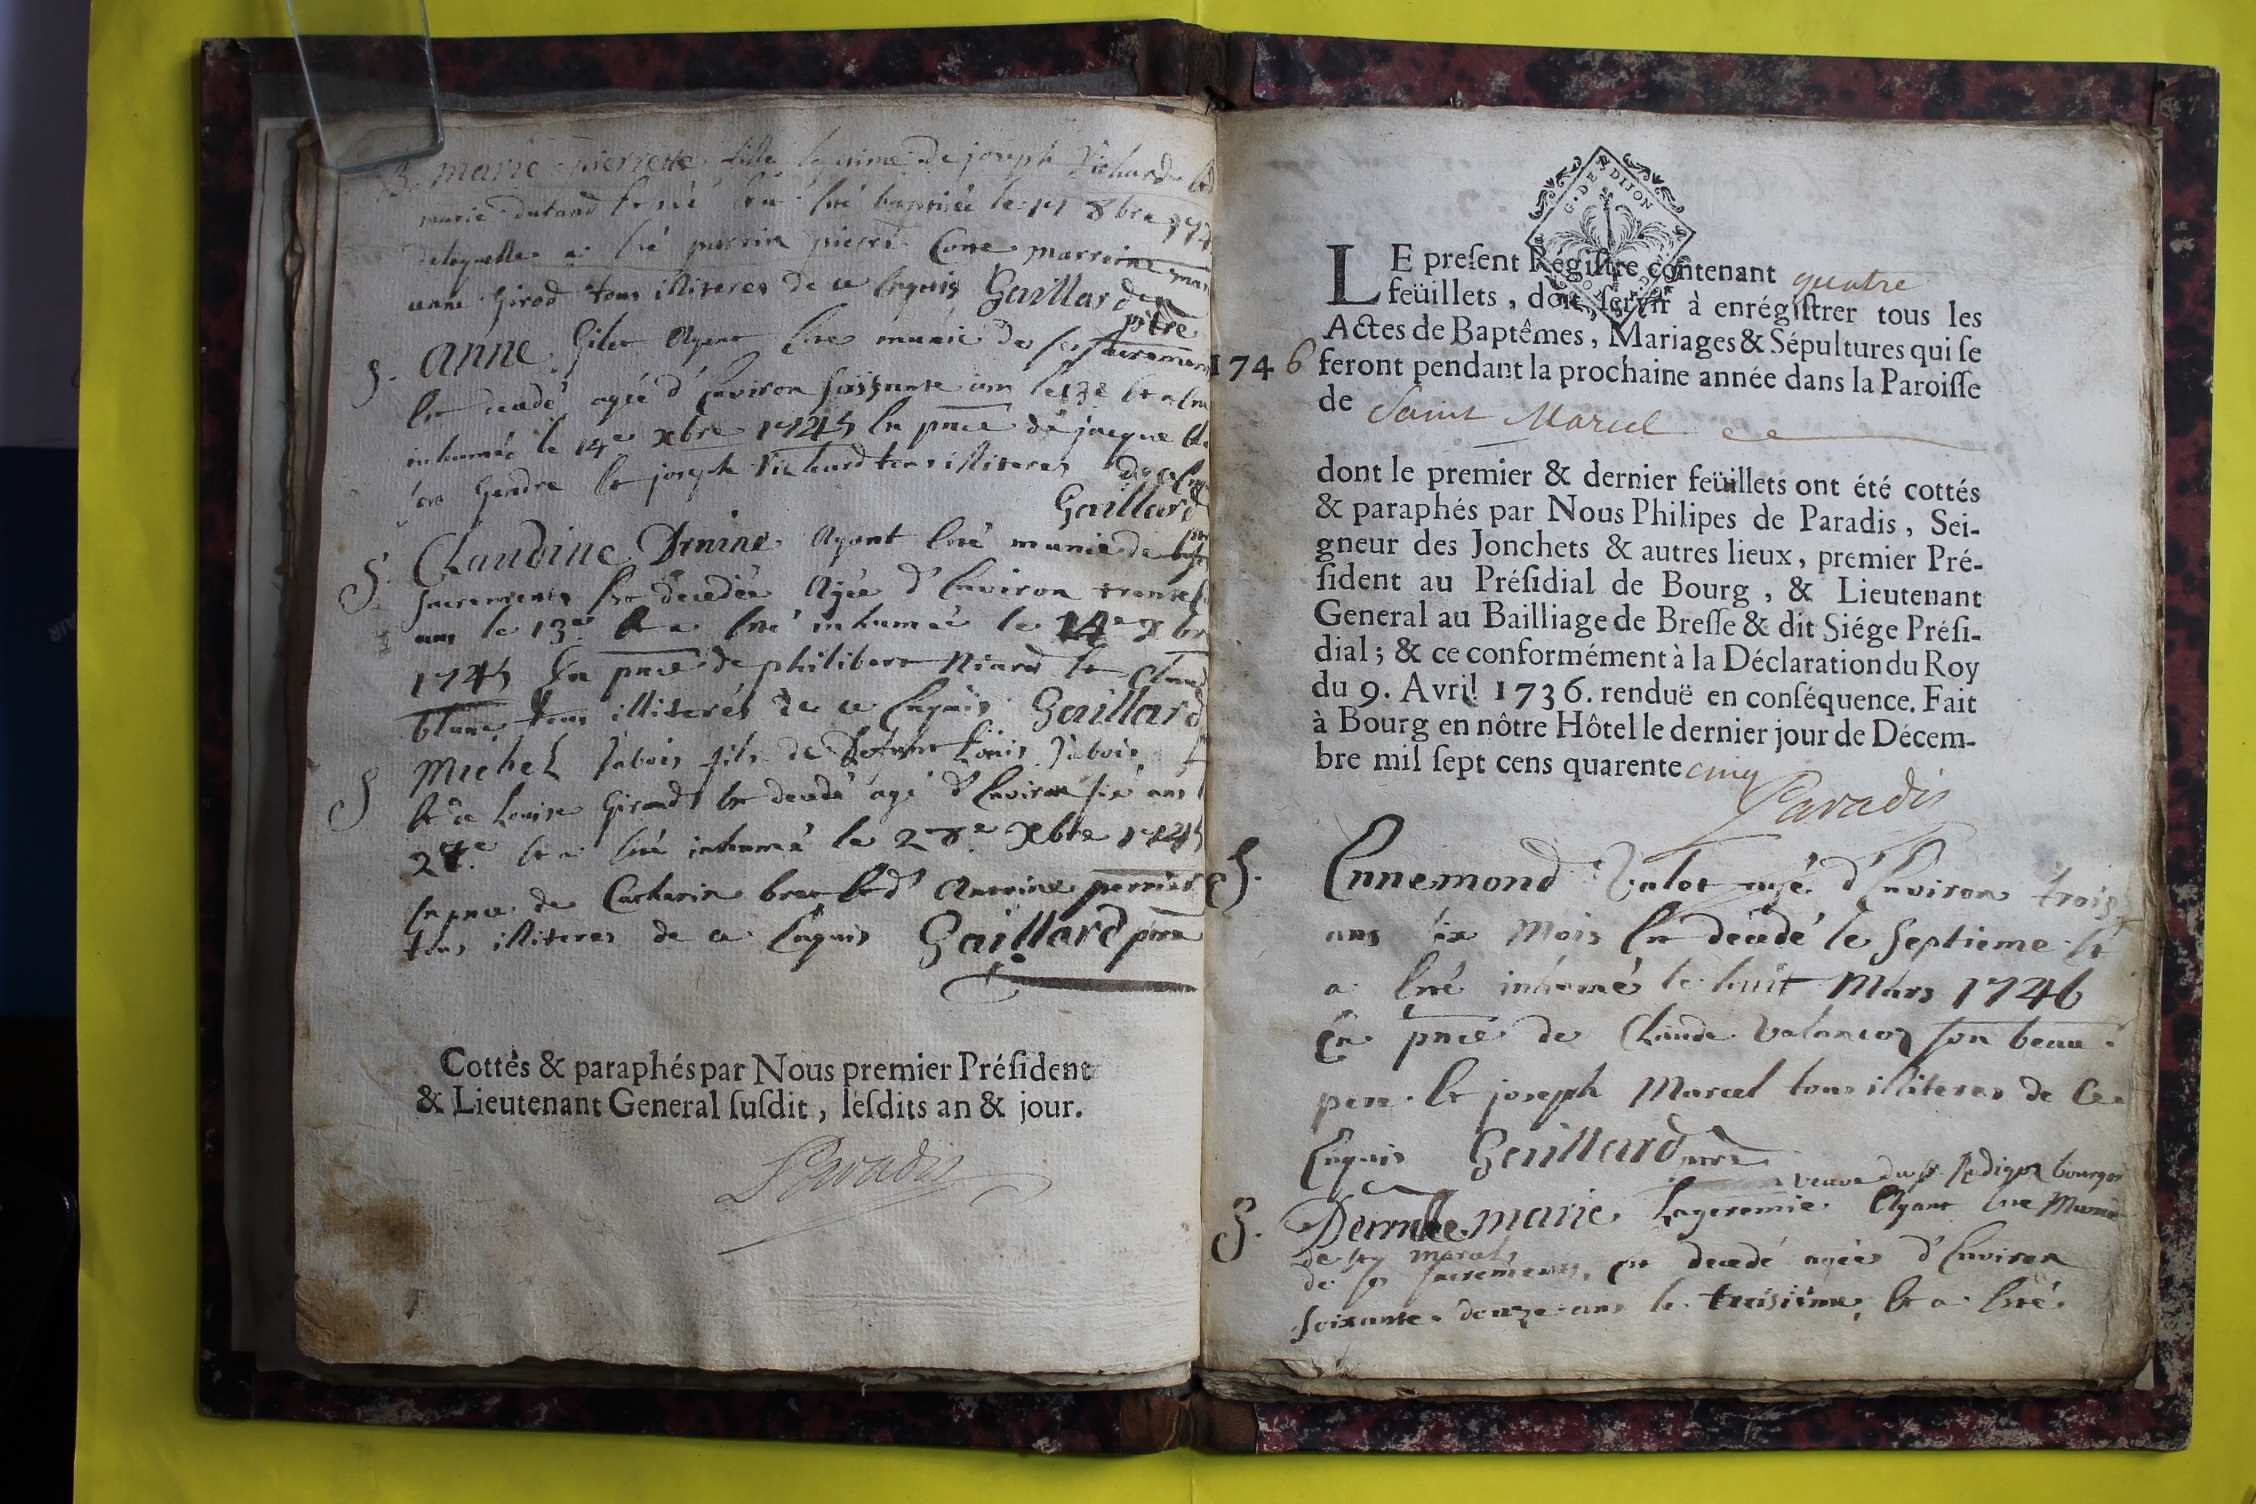 B. marie pierrette fille legitime de joseph Vichard et
marie dutand est né et a été baptisée le 8bre
de laquelle a été parrin pierre Conte marreine
anne Girod tous illiteres de ce Enquis Gaillard
ptre
S. anne Gilet Ayant Eté munie de ses sacremens
Est decedé agée d'Environ soissante ans le 13e Et a Eté
inhumée le 14e xbre 1745 En pnce de jacque
son Gendre Et joseph Vichard tous illiteres de ce Enq
Gaillard
S. Claudine Drnine Ayant Eté munie de
sacremens Est decedée Agée d'Environ trente
ans le 13e Et a Eté inhumée le 14e xbr
1745 En pnce de philibert Niard Et Claud
blanc tous illiterés de ce Enquis Gaillard
S Michel Jabois fils de Defunt Loüis Jabois
Et de Louise Giraud Est decedé agé d'Environ six ans
27e Et a Eté inhumé le 28e Xbre 1745
En pnce de Catherin bret Et d'Antoine perrier
tous illiteres de ce Enquis Gaillard ptre
Cottés & paraphés par Nous premier Président
& Lieutenant General susdit, lesdits an & jour.
Paradis
G. DE DIJON
LE present Registre contenant quatre
feüillets, doit servir à enrégistrer tous les
Actes de Baptêmes, Mariages & Sépultures qui se
1746 feront pendant la prochaine année dans la Paroisse
de Saint Marcel
dont le premier & dernier feüillets ont été cottés
& paraphés par Nous Philipes de Paradis, Sei-
gneur des Jonchets & autres lieux, premier Pré-
sident au Présidial de Bourg, & Lieutenant
General au Bailliage de Bresse & dit Siége Prési-
dial; & ce conformément à la Déclaration du Roy
du 9. Avril 1736. renduë en conséquence. Fait
à Bourg en nôtre Hôtel le dernier jour de Décem-
bre mil sept cens quarente cinq
Paradis
S. Ennemond Valot agé d'Environ trois
ans six Mois En decedé le septieme Et
a Eté inhumé le huit Mars 1746
En pnce de Claude Valancoz son beau
pere Et joseph Marcel tous illiteres de Ce
Enquis Gaillard ptre
veuve du sr Pedigon bourgois
S. Demlle marie Lageremie Ayant Eté Munie
de sq marcel
de ses sacremens, Est decedé agées d'Environ
soixante douze ans le troisième Et a Eté